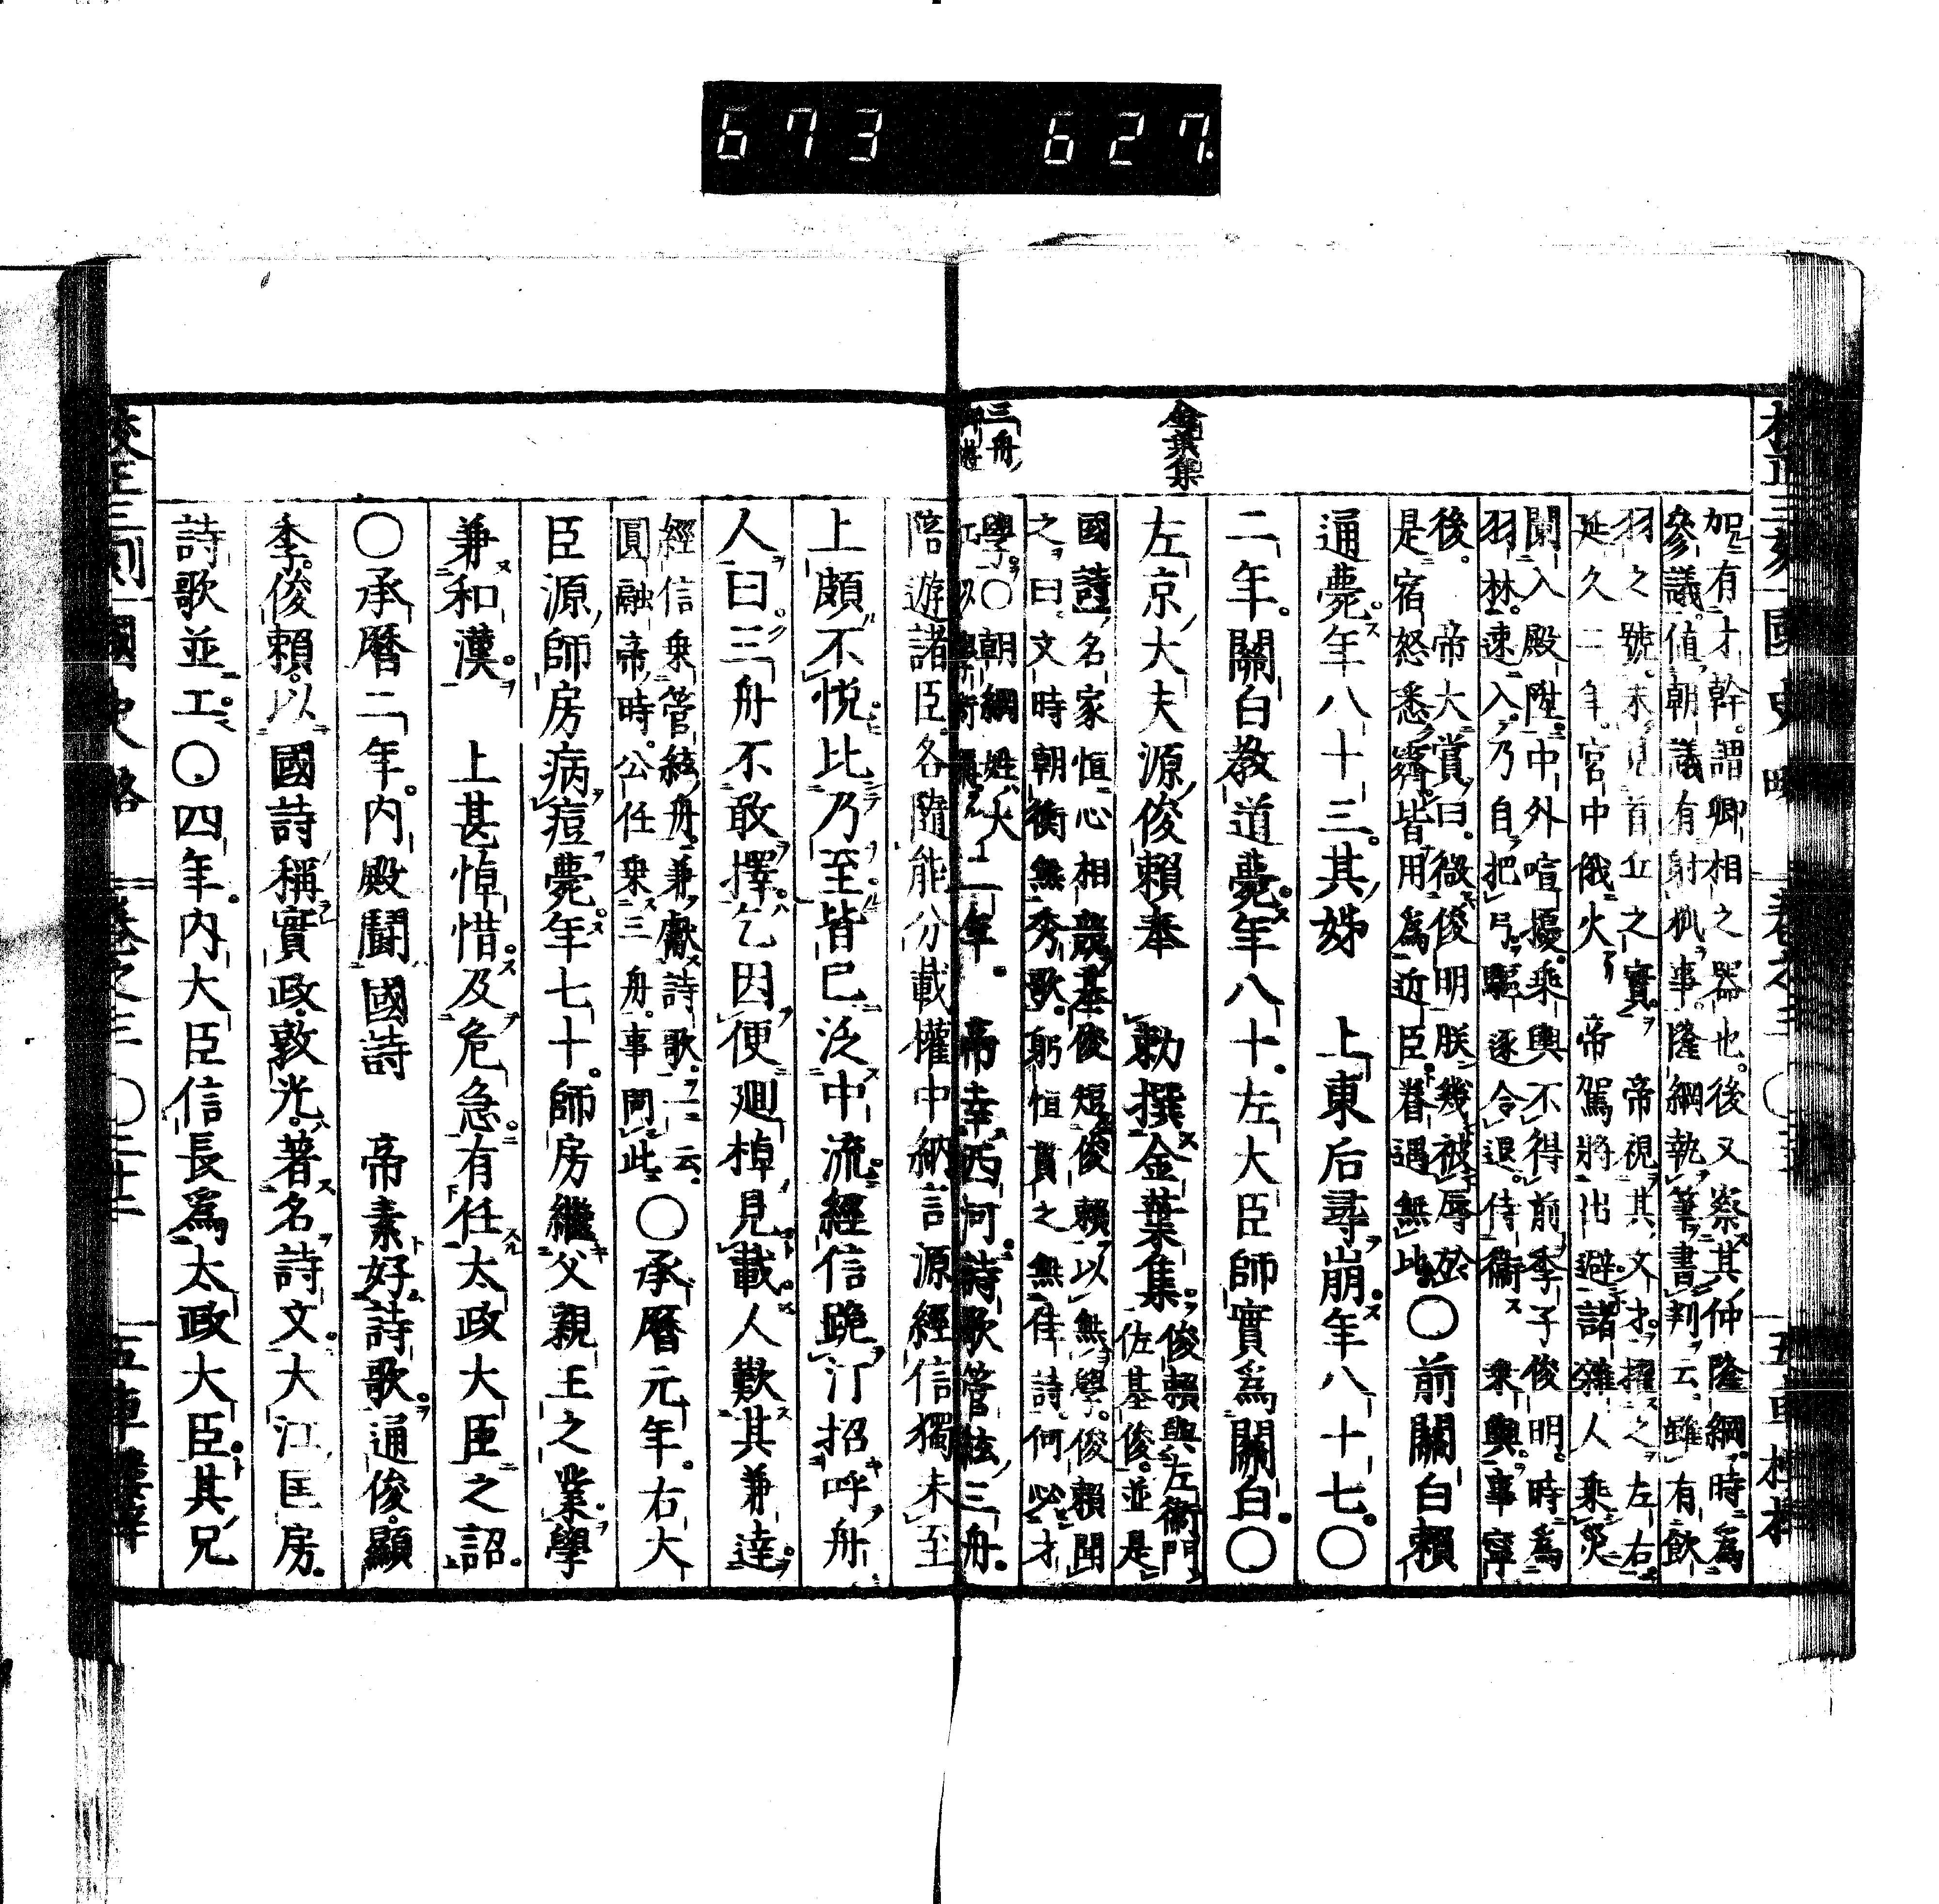 673 627
加有才幹。謂卿相之器也。後又察其仲隆綱。時為
參議。值朝議有射狐事。隆綱執筆書判云。雖有飲
羽之號。未見首丘之實。帝視其文才。擢之左右。
延久二年。宮中俄火。帝駕將出避。諸雜人乘災
闌入殿陛。中外喧擾。乘輿不得前。季子俊明。時為
羽林。速入。乃自把弓驅逐令退。侍衞乘輿。事寧
後。帝大賞曰。微俊明朕幾被辱於
是宿怒悉霽。皆用為近臣。眷遇無比。〇前關白賴
通薨。年八十三。其姊上東后尋崩。年八十七。〇
二年。關白教道薨。年八十。左大臣師實為關白。〇
左京大夫源俊賴奉勅撰金葉集。
俊賴與左衞門
佐基俊。並是
國詩名家恒心相競。基俊短俊賴以無學。俊賴聞
之曰。文時朝衡無秀歌。躬恒貫之無佳詩。何必才
學。〇朝綱姓大
江以學術顯
二年。帝幸西河。詩歌管絃三舟。
陪遊諸臣。各隨能分載。權中納言源經信獨未至
上頗不悅。比乃至皆已泛中流。經信跪汀招呼舟
人曰。三舟不敢擇。乞因便廻棹見載。人歎其兼達。
經信乘管絃舟。兼獻詩歌。一云。
圓融帝時。公任乘三舟。事同此
〇承曆元年。右大
臣源師房病痘薨。年七十。師房繼父親王之業。學
兼和漢。上甚悼惜。及危急。有任太政大臣之詔。
〇承曆二年。內殿鬪國詩帝素好詩歌。通俊。顯
季。俊賴。以國詩稱。實政。敦光。著名詩文。大江匡房。
詩歌並工。〇四年。內大臣信長為太政大臣。其兄
金葉集
三舟